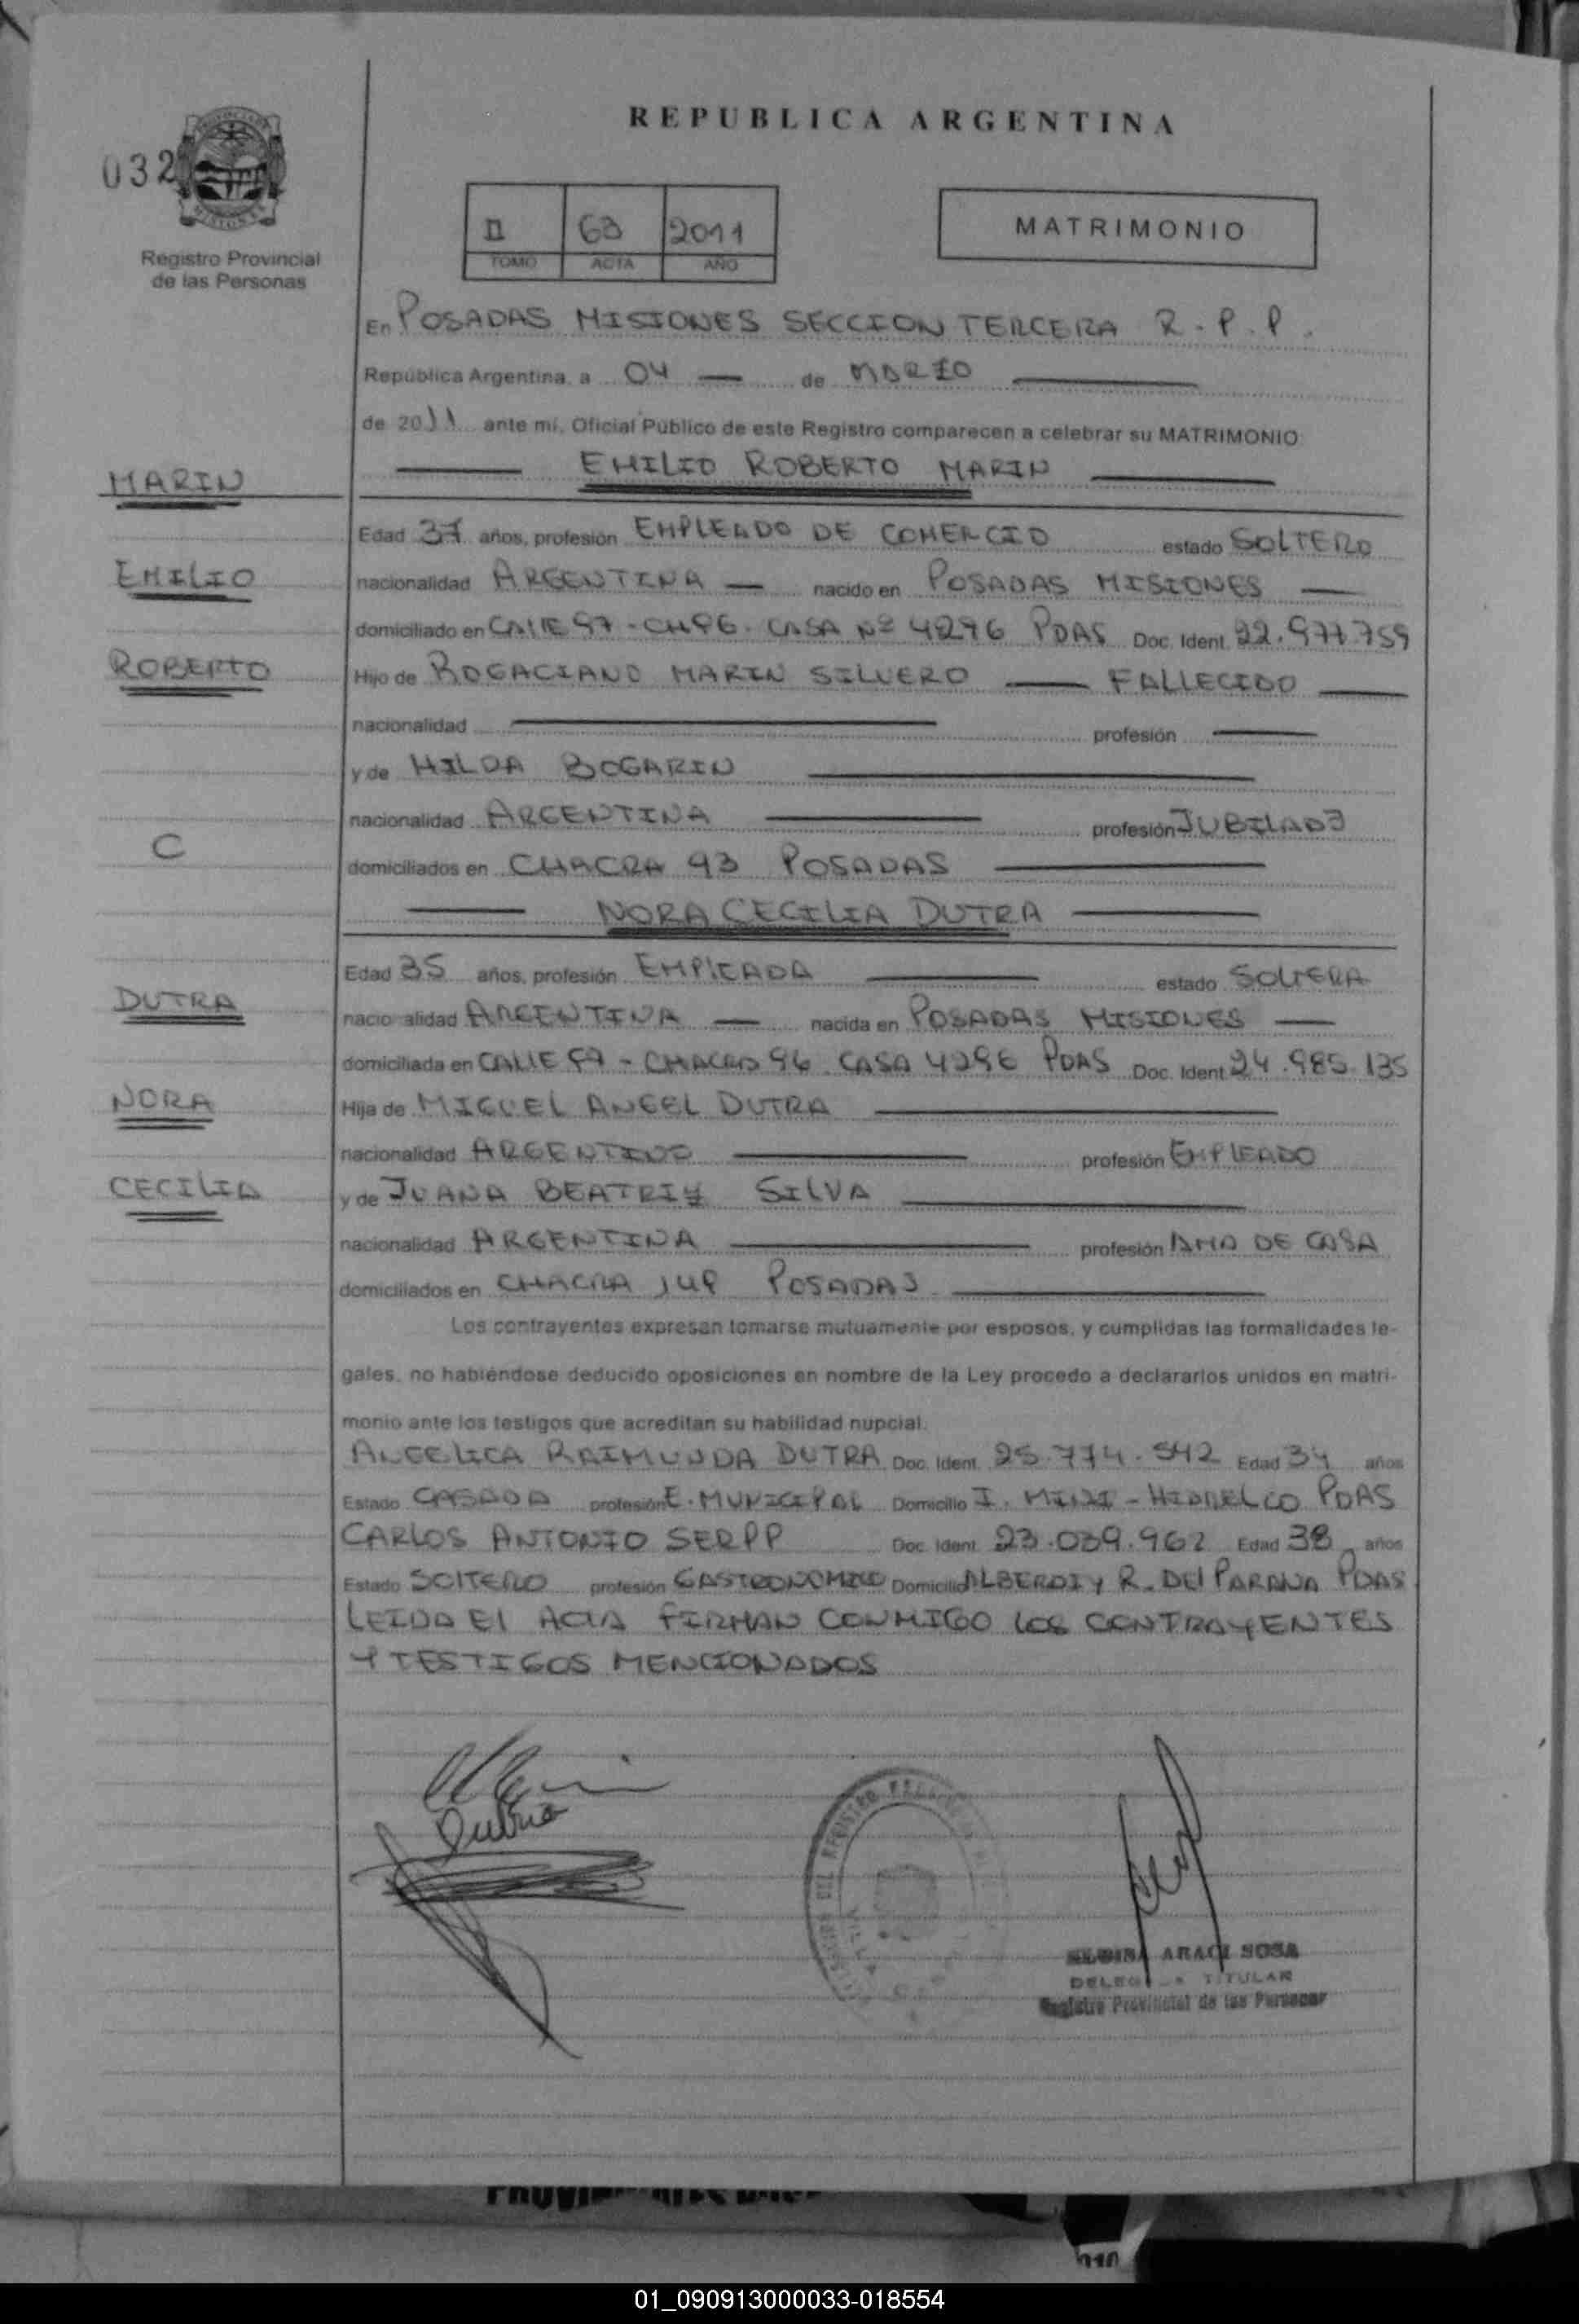 REPUBLICA ARGENTINA
032
Registro Provincial
de las Personas
II 63 2011
TOMO ACTA AÑO
MATRIMONIO
En POSADAS MISIONES SECCION TERCERA R.P.P.
República Argentina, a 04 de MARZO
de 2011 ante mí, Oficial Público de este Registro comparecen a celebrar su MATRIMONIO
MARIN
EMILIO ROBERTO MARIN
Edad 37 años, profesión EMPLEADO DE COMERCIO estado SOLTERO
EMILIO
nacionalidad ARGENTINA nacido en POSADAS MISIONES
domiciliado en CALLE 97 - CH96. CASA Nº 4296 PDAS Doc. Ident. 22.977.759
ROBERTO
Hijo de ROGACIANO MARIN SILVERO FALLECIDO
nacionalidad profesión
y de HILDA BOGARIN
nacionalidad ARGENTINA profesión JUBILADA
C
domiciliados en CHACRA 93 POSADAS
NORA CECILIA DUTRA
Edad 35 años, profesión EMPLEADA estado SOLTERA
DUTRA
nacionalidad ARGENTINA nacida en POSADAS MISIONES
domiciliada en CALLE 97 - CHACRA 96. CASA 4296 PDAS Doc. Ident. 24.985.135
NORA
Hija de MIGUEL ANGEL DUTRA
nacionalidad ARGENTINO profesión EMPLEADO
CECILIA
y de JUANA BEATRIZ SILVA
nacionalidad ARGENTINA profesión AMA DE CASA
domiciliados en CHACRA 149 POSADAS
Los contrayentes expresan tomarse mutuamente por esposos, y cumplidas las formalidades le-
gales, no habiéndose deducido oposiciones en nombre de la Ley procedo a declararlos unidos en matri-
monio ante los testigos que acreditan su habilidad nupcial.
ANGELICA RAIMUNDA DUTRA Doc. Ident. 25.774.542 Edad 34 años
Estado CASADA profesión E. MUNICIPAL Domicilio I. MINI - HIDRELCO PDAS
CARLOS ANTONIO SERPP Doc. Ident. 23.039.962 Edad 38 años
Estado SOLTERO profesión GASTRONOMICO Domicilio ALBERDI Y R. DEL PARANA PDAS
LEIDA El ACTA FIRMAN CONMIGO LOS CONTRAYENTES
Y TESTIGOS MENCIONADOS
Dutra
ARACI SOSA
TITULAR
Registro Provincial de las Personas
01_090913000033-018554